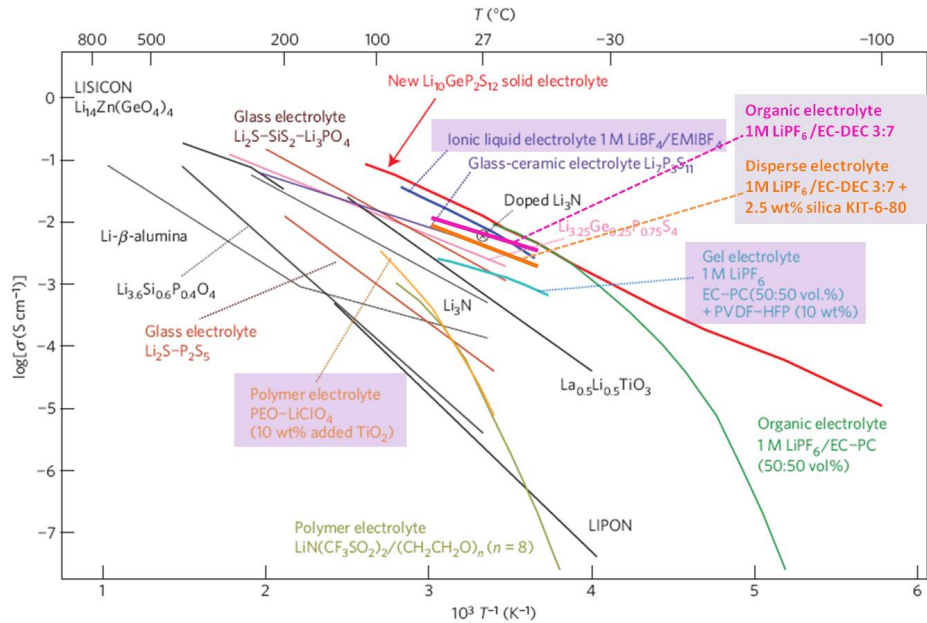 T (°C)
800 500 200 100 27 −30 −100
LISICON
Li₁₄Zn(GeO₄)₄
New Li₁₀GeP₂S₁₂ solid electrolyte
Glass electrolyte
Li₂S–SiS₂–Li₃PO₄
Ionic liquid electrolyte 1 M LiBF₄/EMIBF₄
Glass-ceramic electrolyte Li₇P₃S₁₁
Organic electrolyte
1M LiPF₆/EC-DEC 3:7
Disperse electrolyte
1M LiPF₆/EC-DEC 3:7 +
2.5 wt% silica KIT-6-80
Doped Li₃N
Li₃.₂₅Ge₀.₂₅P₀.₇₅S₄
Li-β-alumina
Li₃.₆Si₀.₆P₀.₄O₄
Glass electrolyte
Li₂S–P₂S₅
Li₃N
Gel electrolyte
1 M LiPF₆
EC–PC(50:50 vol.%)
+ PVDF–HFP (10 wt%)
La₀.₅Li₀.₅TiO₃
Polymer electrolyte
PEO–LiClO₄
(10 wt% added TiO₂)
Organic electrolyte
1 M LiPF₆/EC–PC
(50:50 vol%)
LIPON
Polymer electrolyte
LiN(CF₃SO₂)₂/(CH₂CH₂O)ₙ (n = 8)
log[σ(S cm⁻¹)]
0
−1
−2
−3
−4
−5
−6
−7
1 2 3 4 5 6
10³ T⁻¹ (K⁻¹)